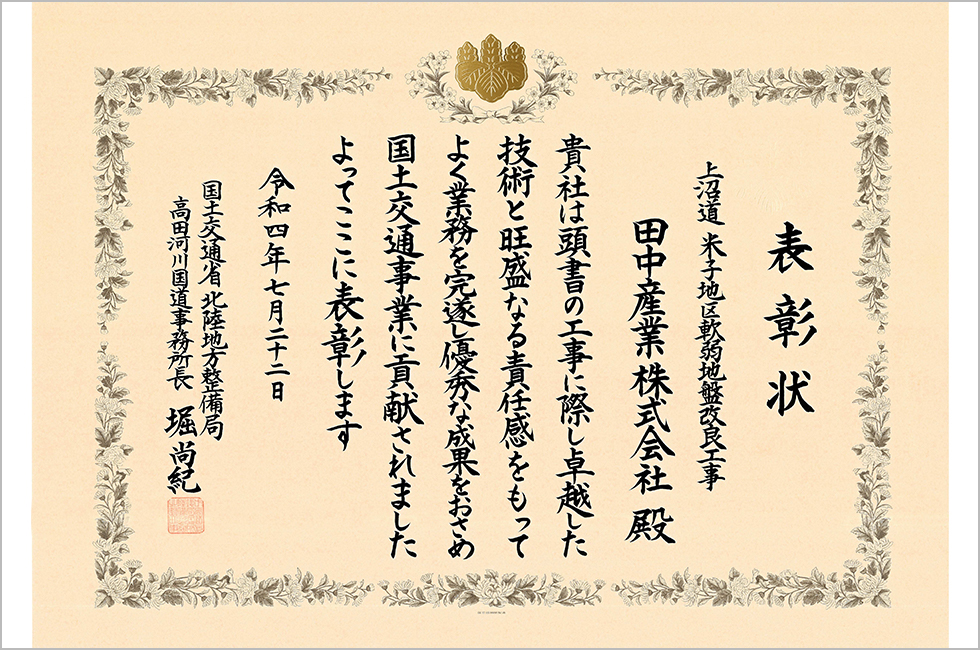 表彰状
上沼道 米子地区軟弱地盤改良工事
田中産業株式会社 殿
貴社は頭書の工事に際し卓越した
技術と旺盛なる責任感をもって
よく業務を完遂し優秀な成果をおさめ
国土交通事業に貢献されました
よってここに表彰します
令和四年七月二十二日
国土交通省 北陸地方整備局
高田河川国道事務所長 堀 尚紀